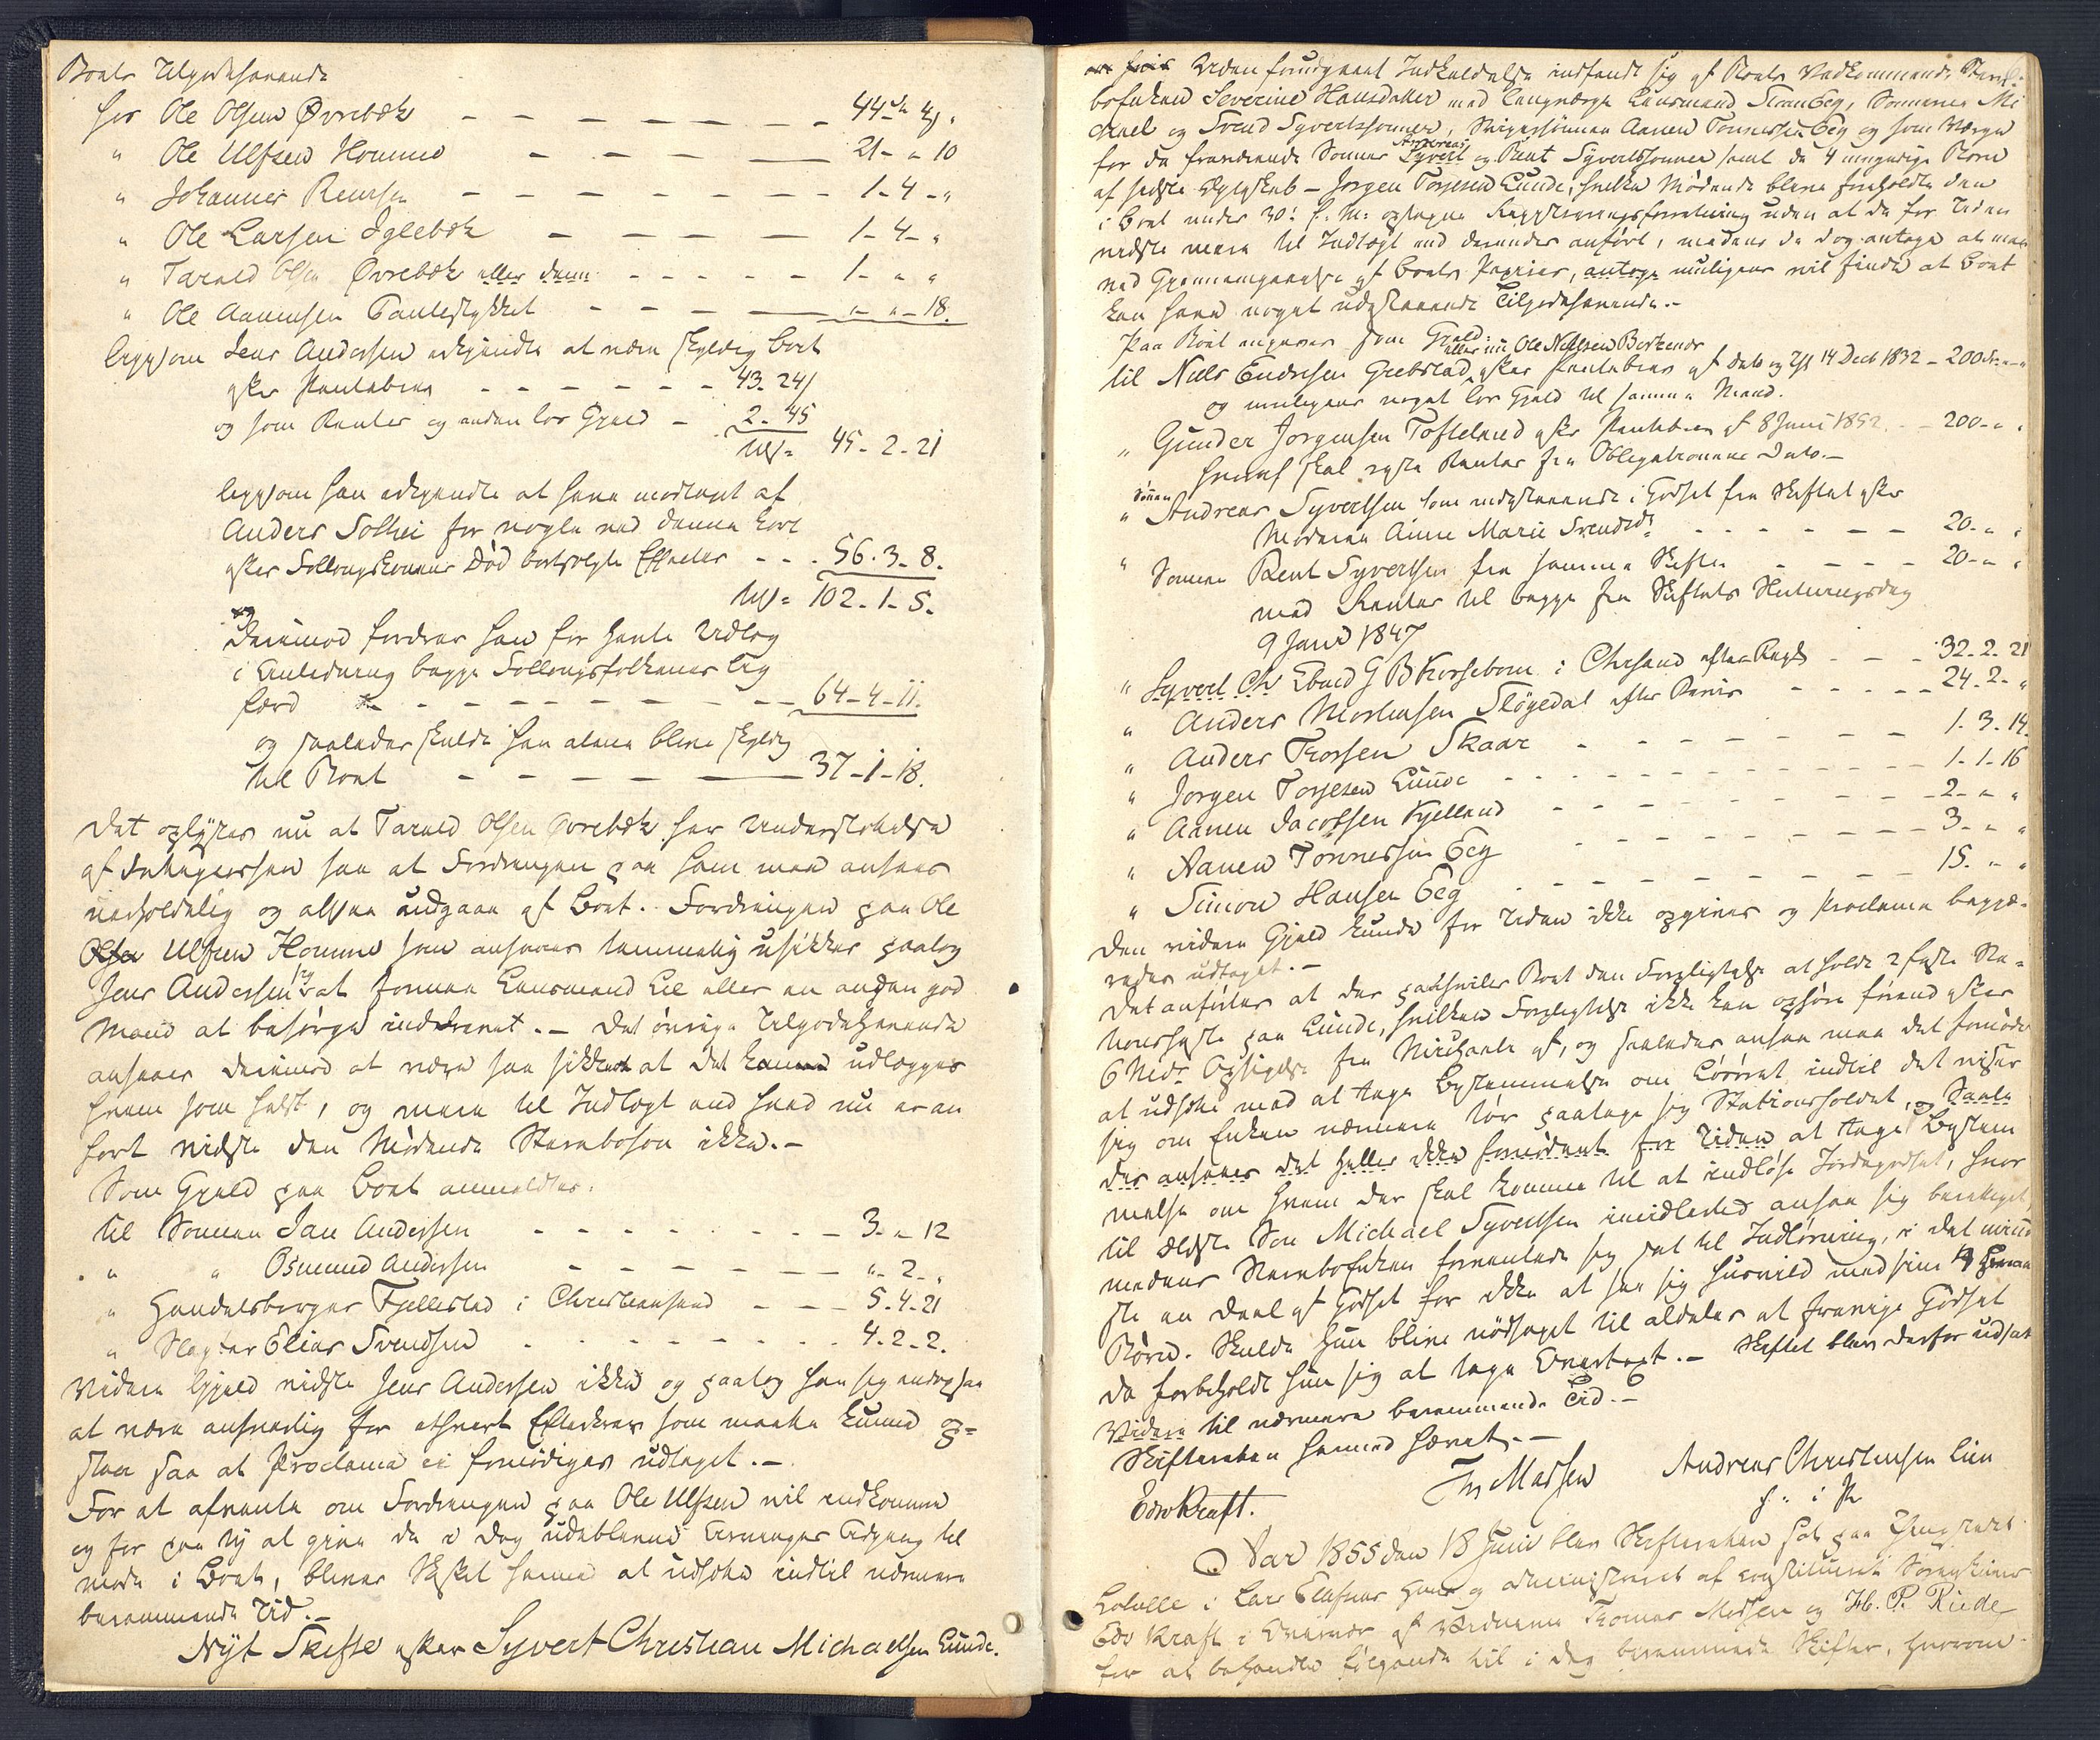 Boets Tilgodehavende
hos Ole Olsen Øvrebøk - - - - - - - - 44 4 "
" Ole Ulfsen Homme - - - - 21 - " 10
" Johannes Reiersen - - - - - - - - 1 - 4 - "
" Ole Larsen Iglebæk - - - - - 1 - 4 - "
" Tarald Olsen Øvrebøk eller denn - - - - - 1 - " "
" Ole Aanensen - - - - " - " - 18.
ligesom Jens Andersen erkjendte at være skyldig Boet
efter Pantebrev - - - - - - 43. 24/
og som Renter og anden løs Gjæld - 2. 45
45 - 2 - 21
ligesom han erkjendte at have modtaget af
Anders Solhei for nogle ved denne kort
efter Føllougskonens Død bortsolgte Effecter - - . 56. 3 - 8.
102 - 1 - 5.
Derimod fordrer han for havte Udlæg
i Anledning begge Føllougsfolkenes Lig
færd - - - - - - - - - 64 - 4 - 11.
og saaledes skulde han alene blive skyldig
til Boet - - - - - 37 - 1 - 18.
Det oplyses nu at Tarald Olsen Øvrebøk har Understøttelse
af Fattigkassen saa at Fordringen paa ham maa ansees
uerholdelig og altsaa udgaae af Boet. Fordringen paa Ole
Olsen Ulfsen Homme som ansees temmelig usikker paatog
Jens Andersen sig at formaa Lensmand Lie eller en anden god
Mand at besørge inddrevet. - Det øvrige Tilgodehavende
ansees derimod at være saa sikkert at det kunde udlægges
hvem som helst, og mere til Indtægt end hvad nu er an
ført vidste den Mødende Stervboson ikke. -
Som Gjæld paa Boet anmeldtes.
til Sønnen Jan Andersen - - - - - - - - - 3 - " 12
" " Osmund Andersen - - - - - - " - 2 - "
" Handelsborger Fjellestad i Christiansand - - - 5. 4. 21
" Slagter Elias Svendsen - - - - - - - 4. 2. 2.
Videre Gjæld vidste Jens Andersen ikke og paatog han sig ogsaa
at være ansvarlig for ethvert Efterkrav som maatte kunne op-
staa saa at Proclama ei fornødiges udtaget. -
For at afvente om Fordringen paa Ole Ulfsen vil indkomme
og for paa ny at give de i Dag udeblevne Arvinger Adgang til
møde i Boet, bliver Skiftet herved at udsætte indtil nærmere
berammende Tid. -
Nyt Skifte efter Syvert Christian Michaelsen Lunde.
Uden forudgaaet Indkaldelse indfandt sig af Boets Vedkommende Sterv-
boenken Severine Hansdatter med Laugværge Lensmand, Sønnerne Mi
chael og Svend Syvertssønner, Svigersønnen Aanen Tønnessen Eeg og som Værge
for de fraværende Sønner Andreas Syvert og Bent Syvertssønner samt de 4 umyndige Børn
af sidste Ægteskab - Jørgen Torjesen Lunde, hvilke Mødende bleve foreholdte den
i Boet under 30 f: M: optagne Registreringsforretning uden at de for Tiden
vidste mere til Indtægt end derunder anført, medens de dog antage at man
ved Gjennemgaaelse af Boets Papirer, antage muligens vil finde at Boet
kan have noget udestaaende Tilgodehavende. -
Paa Boet angives som Gjæld:
eller nu Ole Nilssen Birkenes
til Niels Endresen Grebstad, efter Pantebrev af Dato og 14 Decb 1832 - 200 - "
og muligens noget løs Gjæld til samme Mand.
" Gunder Jørgensen Tofteland efter Pantebrev af 8 Juni 1852 - - 200 - " "
hvoraf skal svares Renter fra Obligationens Dato. -
" Sønnen Andreas Syvertsen som indestaaende i Godset fra Skiftet efter
Moderen Anne Marie Svendsd: - - - - - - - 20 - " "
" Sønnen Bent Syvertsen fra samme Skifte - - - - 20 - " "
med Renter til begge fra Skiftets Slutningsdag
9 Janv 1847
" Syvert Ch. G B Korsebom i Chrsand efter Regn - - - 32. 2. 21
" Anders Mortensen Fløgedal efter Beviis - - - - 24. 2 - "
" Anders Torsen Skaar - - - - - - - - 1. 3. 14.
" Jørgen Torjesen Lunde - - - - - - - - 1 - 1 - 16
" Aanen Jacobsen Kjelland - - - - - - - 2 - " "
" Aanen Tønnessen Eeg - - - - - - - 3 - " "
" Simon Hansen Eeg - - - - - - - - 15. " "
Den videre Gjæld kunde for Tiden ikke opgives og Proclama begjæ-
redes udtaget. -
Det anførtes at der paahviler Boet den Forpligtelse at holde 2 faste Sta-
tionsheste paa Lunde, hvilken Forpligtelse ikke kan ophøre førend efter
6 Mdrs Opsigelse fra Michaeli af, og saaledes ansaa man det fornødent
at udsætte med at tage Bestemmelse om Løsøret indtil det viser
sig om Enken nærmere tør paatage sig Stationsholdet, og Saale
des ansees det heller ikke fornødent for Tiden at tage Bestem
melse om hvem der skal komme til at indløse Jordegodset, hvor
til ældste Søn Michael Syvertsen imidlertid ansaa sig berettiget,
medens Stervboenken formente sig ret til Indløsning, i det mind
ste en Deel af Godset for ikke at see sig huusvild med sine 4
Børn. Skulde hun blive nødsaget til aldeles at fravige Godset
da forbeholdt hun sig at tage. - Skiftet blev derfor udsat
Videre til nærmere berammende Tid. -
Skifteretten hermed hævet. -
Edv Kraft. Ths Madsen Andreas Christensen Lien
Aar 1855 den 18 Juni blev Skifteretten sat paa Thingstedet
i Lars Huus og administreret af constitueret Sorenskriver
Edv Kraft i Overvær af Vidnerne Thomas Madsen og P. Rieder
for at behandle følgende til i Dag berammede Skifter, hvorom